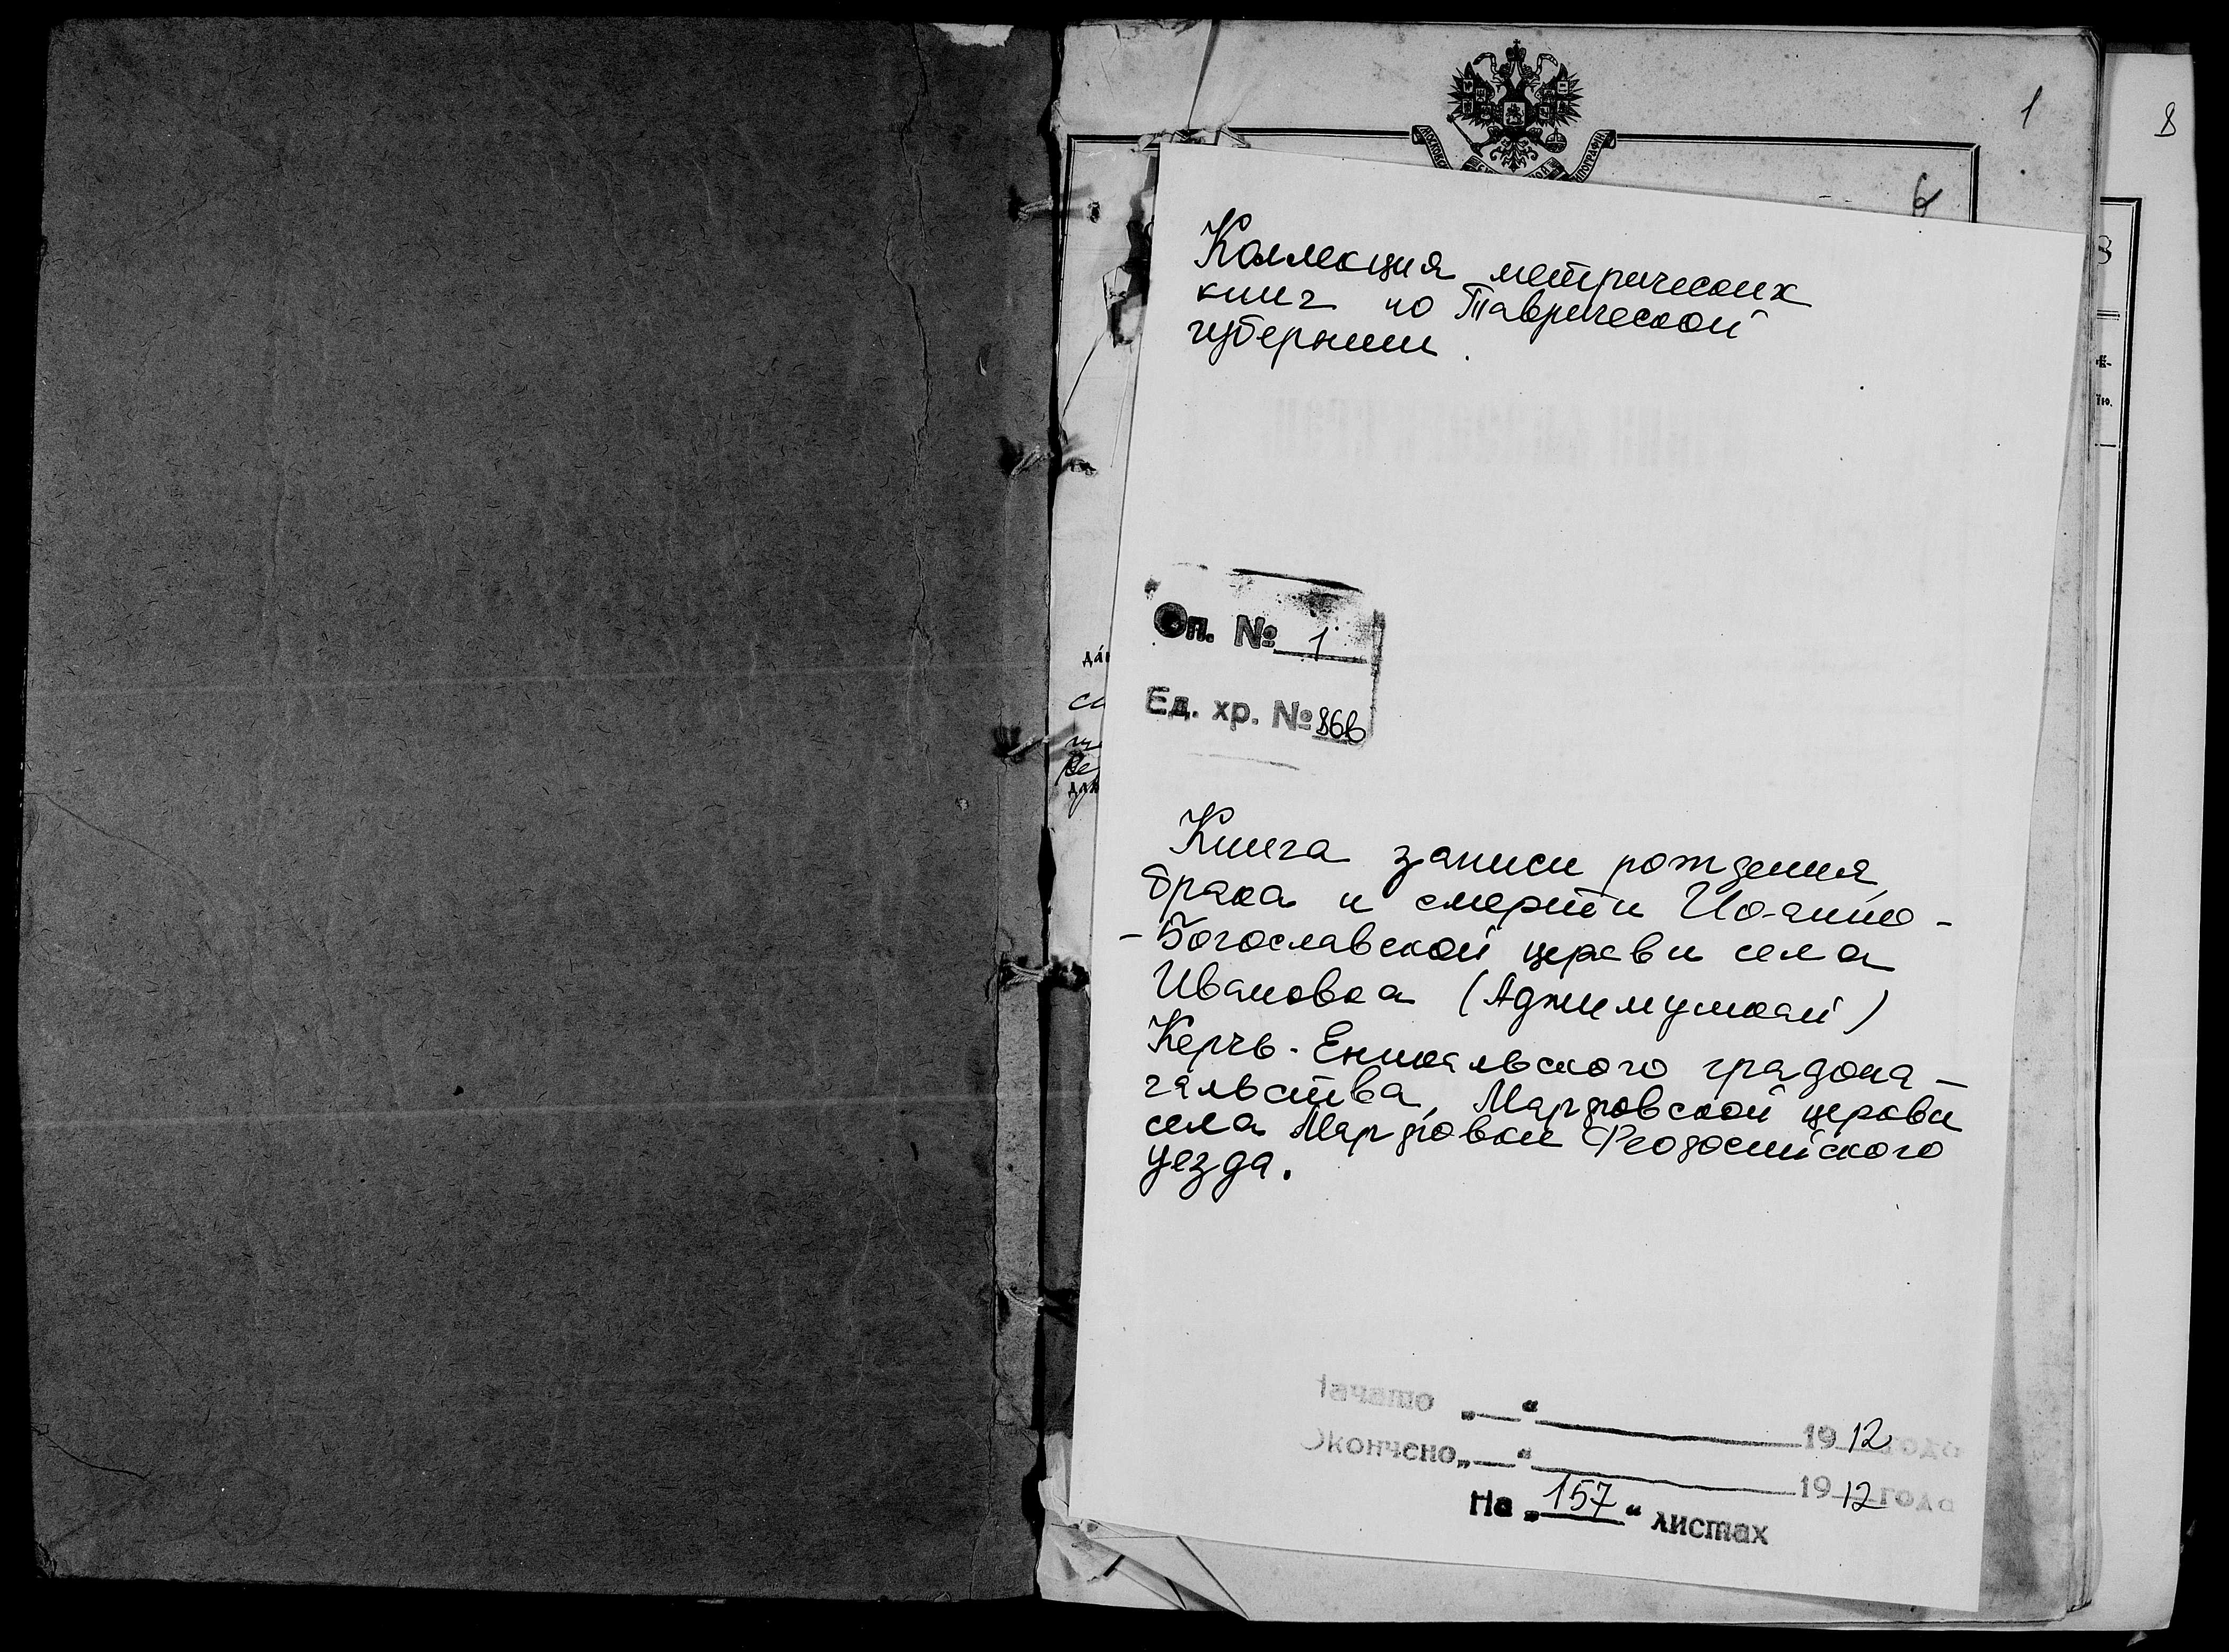 1
8
6
Коллекция метрических
книг по Таврической
губернии.
Оп. № 1
Ед. хр. № 866
Книга записи рождения,
брака и смерти Иоанно-
-Богославской церкви села
Ивановка (Аджимушкай)
Керчь-Еникальского градона-
чальства, Марфовской церкви
села Марфовки Феодосийского
уезда.
Начато „ “ 1912 года
Окончено „ “ 1912 года
На „157“ листах